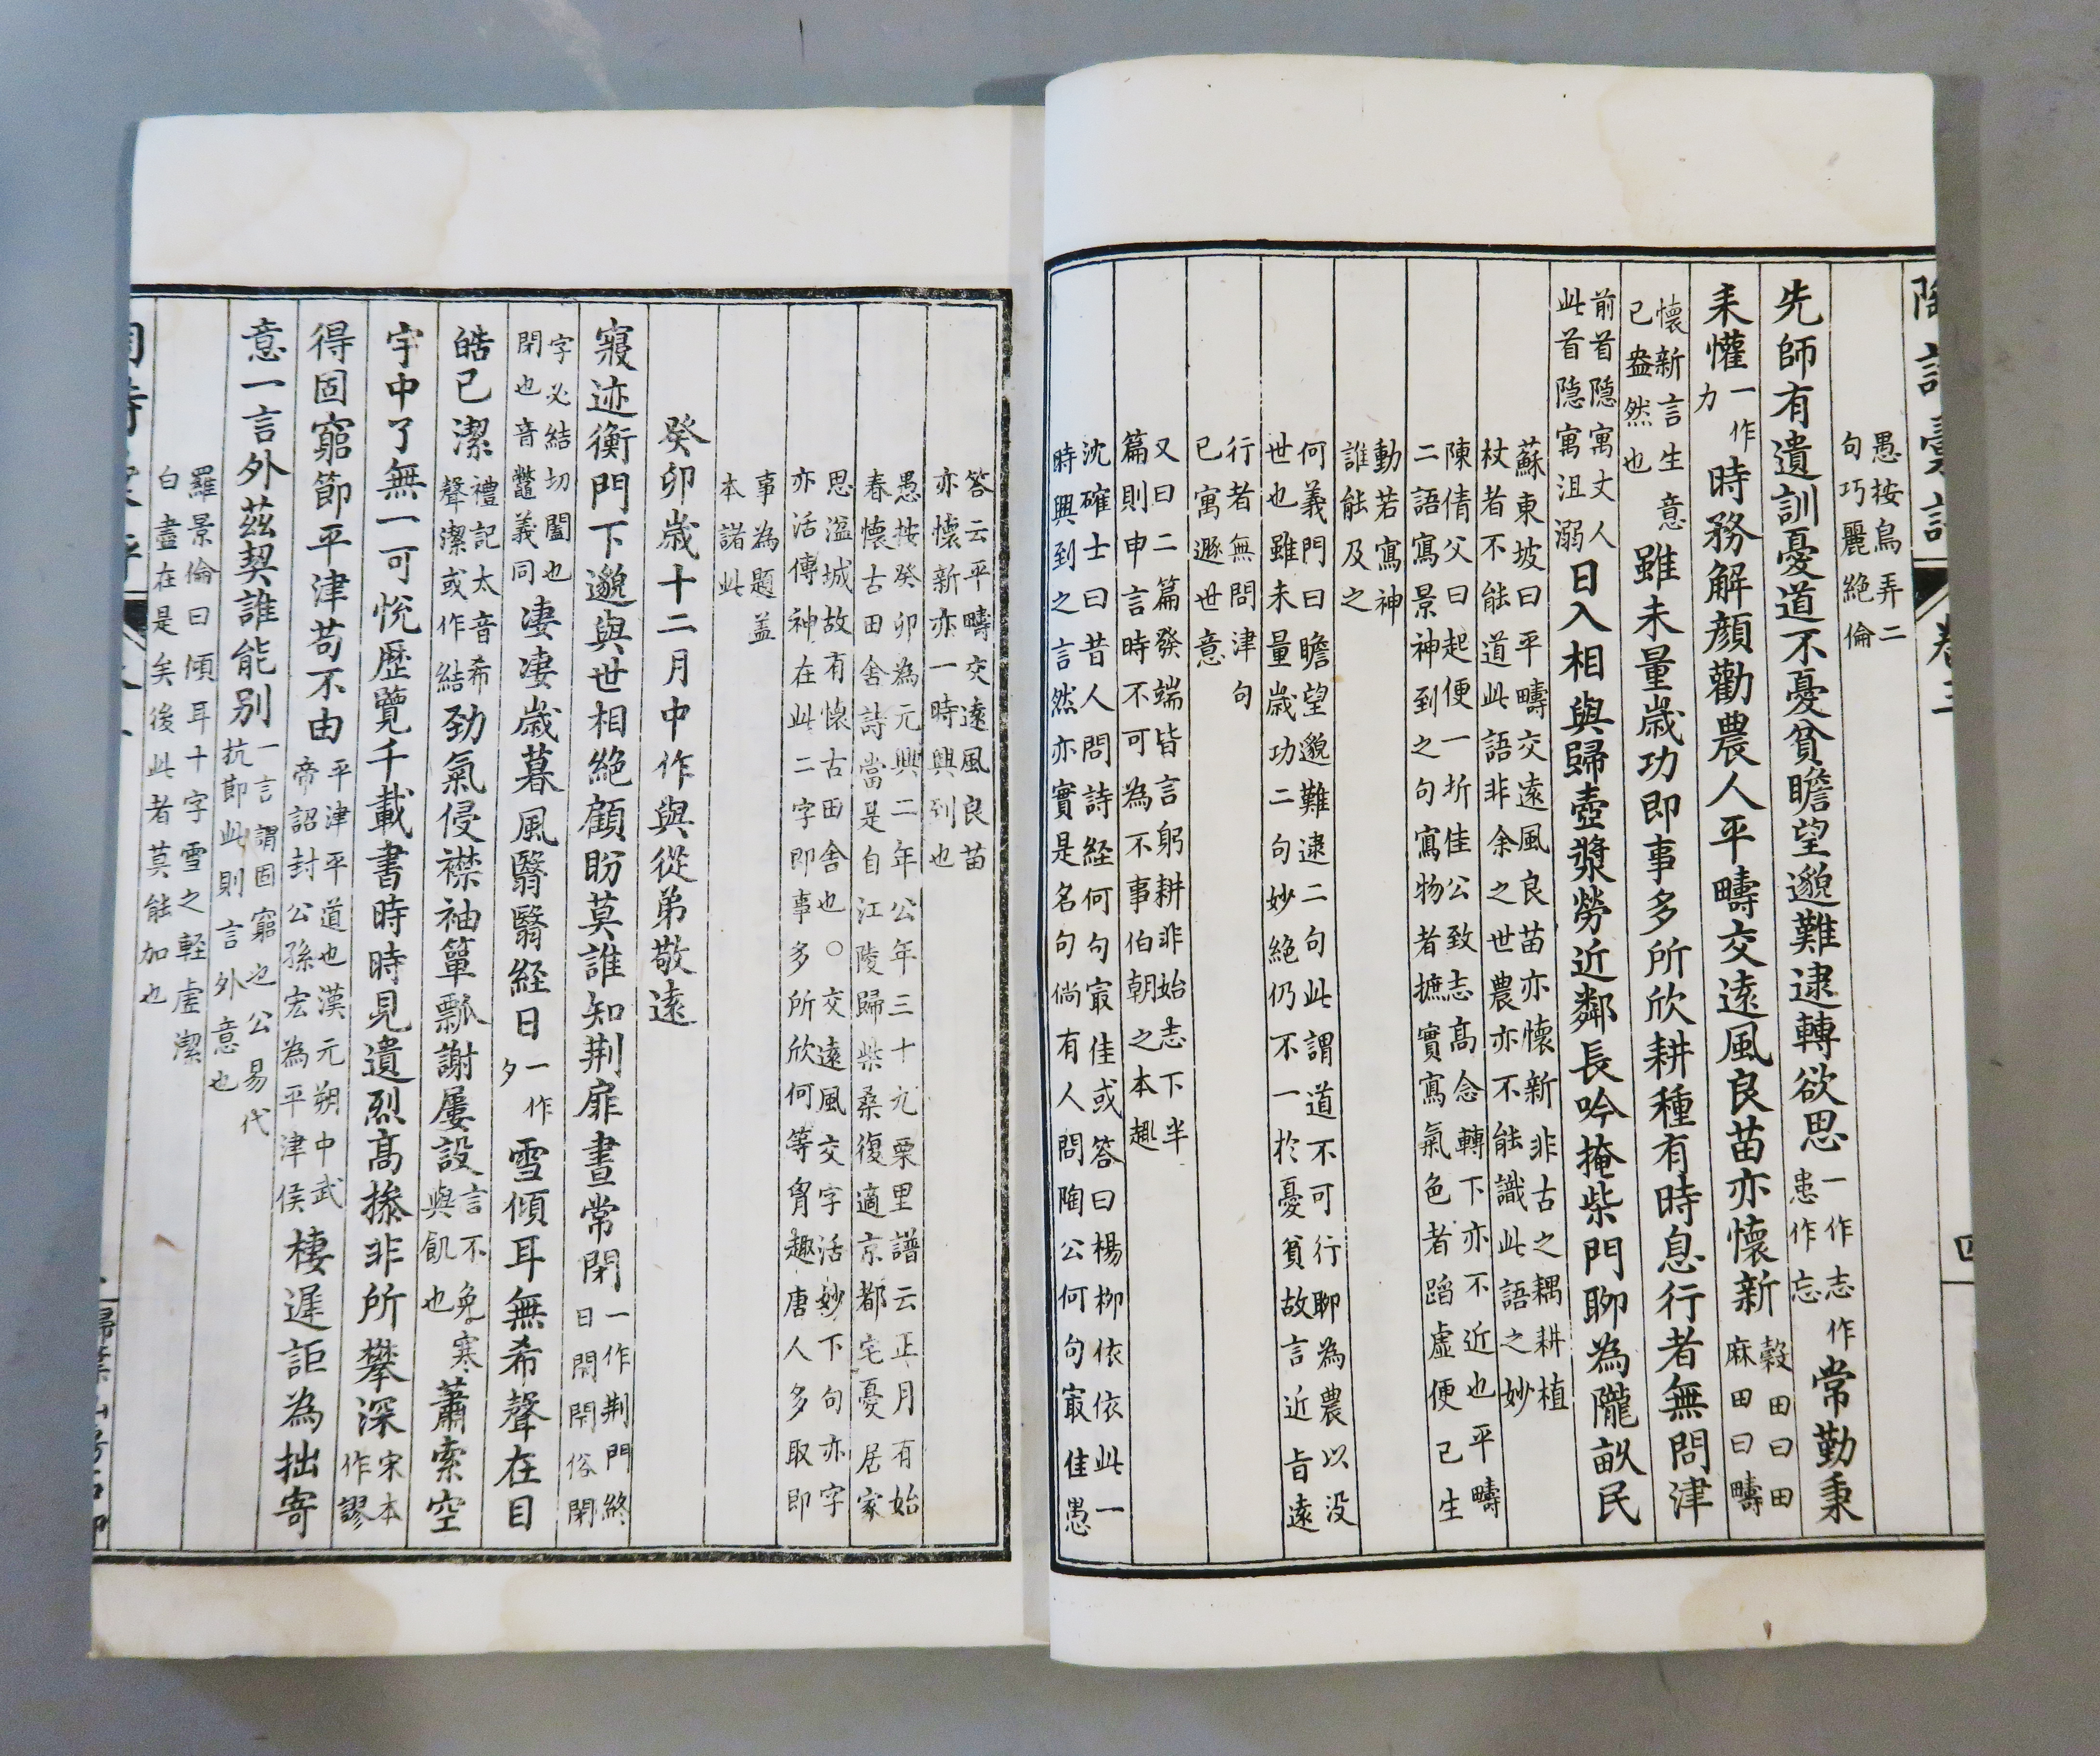 陶詩彙評 卷三 四
愚按鳥弄二
句巧麗絶倫
先師有遺訓憂道不憂貧瞻望邈難逮轉欲思一作志作患作忘常勤秉
耒懽一作力時務解顔勸農人平疇交遠風良苗亦懷新穀田曰田麻田曰疇
懷新言生意已盎然也雖未量歲功即事多所欣耕種有時息行者無問津
前首隱寓丈人此首隱寓沮溺日入相與歸壺漿勞近鄰長吟掩柴門聊為隴畝民
蘇東坡曰平疇交遠風良苗亦懷新非古之耦耕植
杖者不能道此語非余之世農亦不能識此語之妙
陳倩父曰起便一折佳公致志高念轉下亦不近也平疇
二語寫景神到之句寫物者摭實寫氣色者蹈虛便已生
動若寫神
誰能及之
何義門曰瞻望邈難逮二句此謂道不可行聊為農以没
世也雖未量歲功二句妙絶仍不一於憂貧故言近旨遠
行者無問津句
已寓遯世意
又曰二篇發端皆言躬耕非始志下半
篇則申言時不可為不事伯朝之本趣
沈確士曰昔人問詩経何句㝡佳或答曰楊栁依依此一
時興到之言然亦實是名句倘有人問陶公何句㝡佳愚
答云平疇交遠風良苗
亦懷新亦一時興到也
愚按癸卯為元興二年公年三十九栗里譜云正月有始
春懷古田舍詩當是自江陵歸柴桑復適京都宅憂居家
思湓城故有懷古田舍也○交遠風交字活妙下句亦字
亦活傳神在此二字即事多所欣何等胷趣唐人多取即
事為題蓋
本諸此
癸卯歲十二月中作與從弟敬遠
寢迹衡門下邈與世相絶顧盼莫誰知荆扉晝常閉一作荆門終日閉閉俗閉
字必結切闔也閉也音鼈義同淒淒歲暮風翳翳経日一作夕雪傾耳無希聲在目
皓已潔禮記太音希聲潔或作結勁氣侵襟袖簞瓢謝屢設言不免寒與飢也蕭索空
宇中了無一可悅歷覽千載書時時見遺烈高操非所攀深宋本作謬
得固窮節平津苟不由平津平道也漢元朔中武帝詔封公孫宏為平津侯棲遲詎為拙寄
意一言外茲契誰能别一言謂固窮也公易代抗節此則言外意也
羅景倫曰傾耳十字雪之軽虛潔
白盡在是矣後此者莫能加也